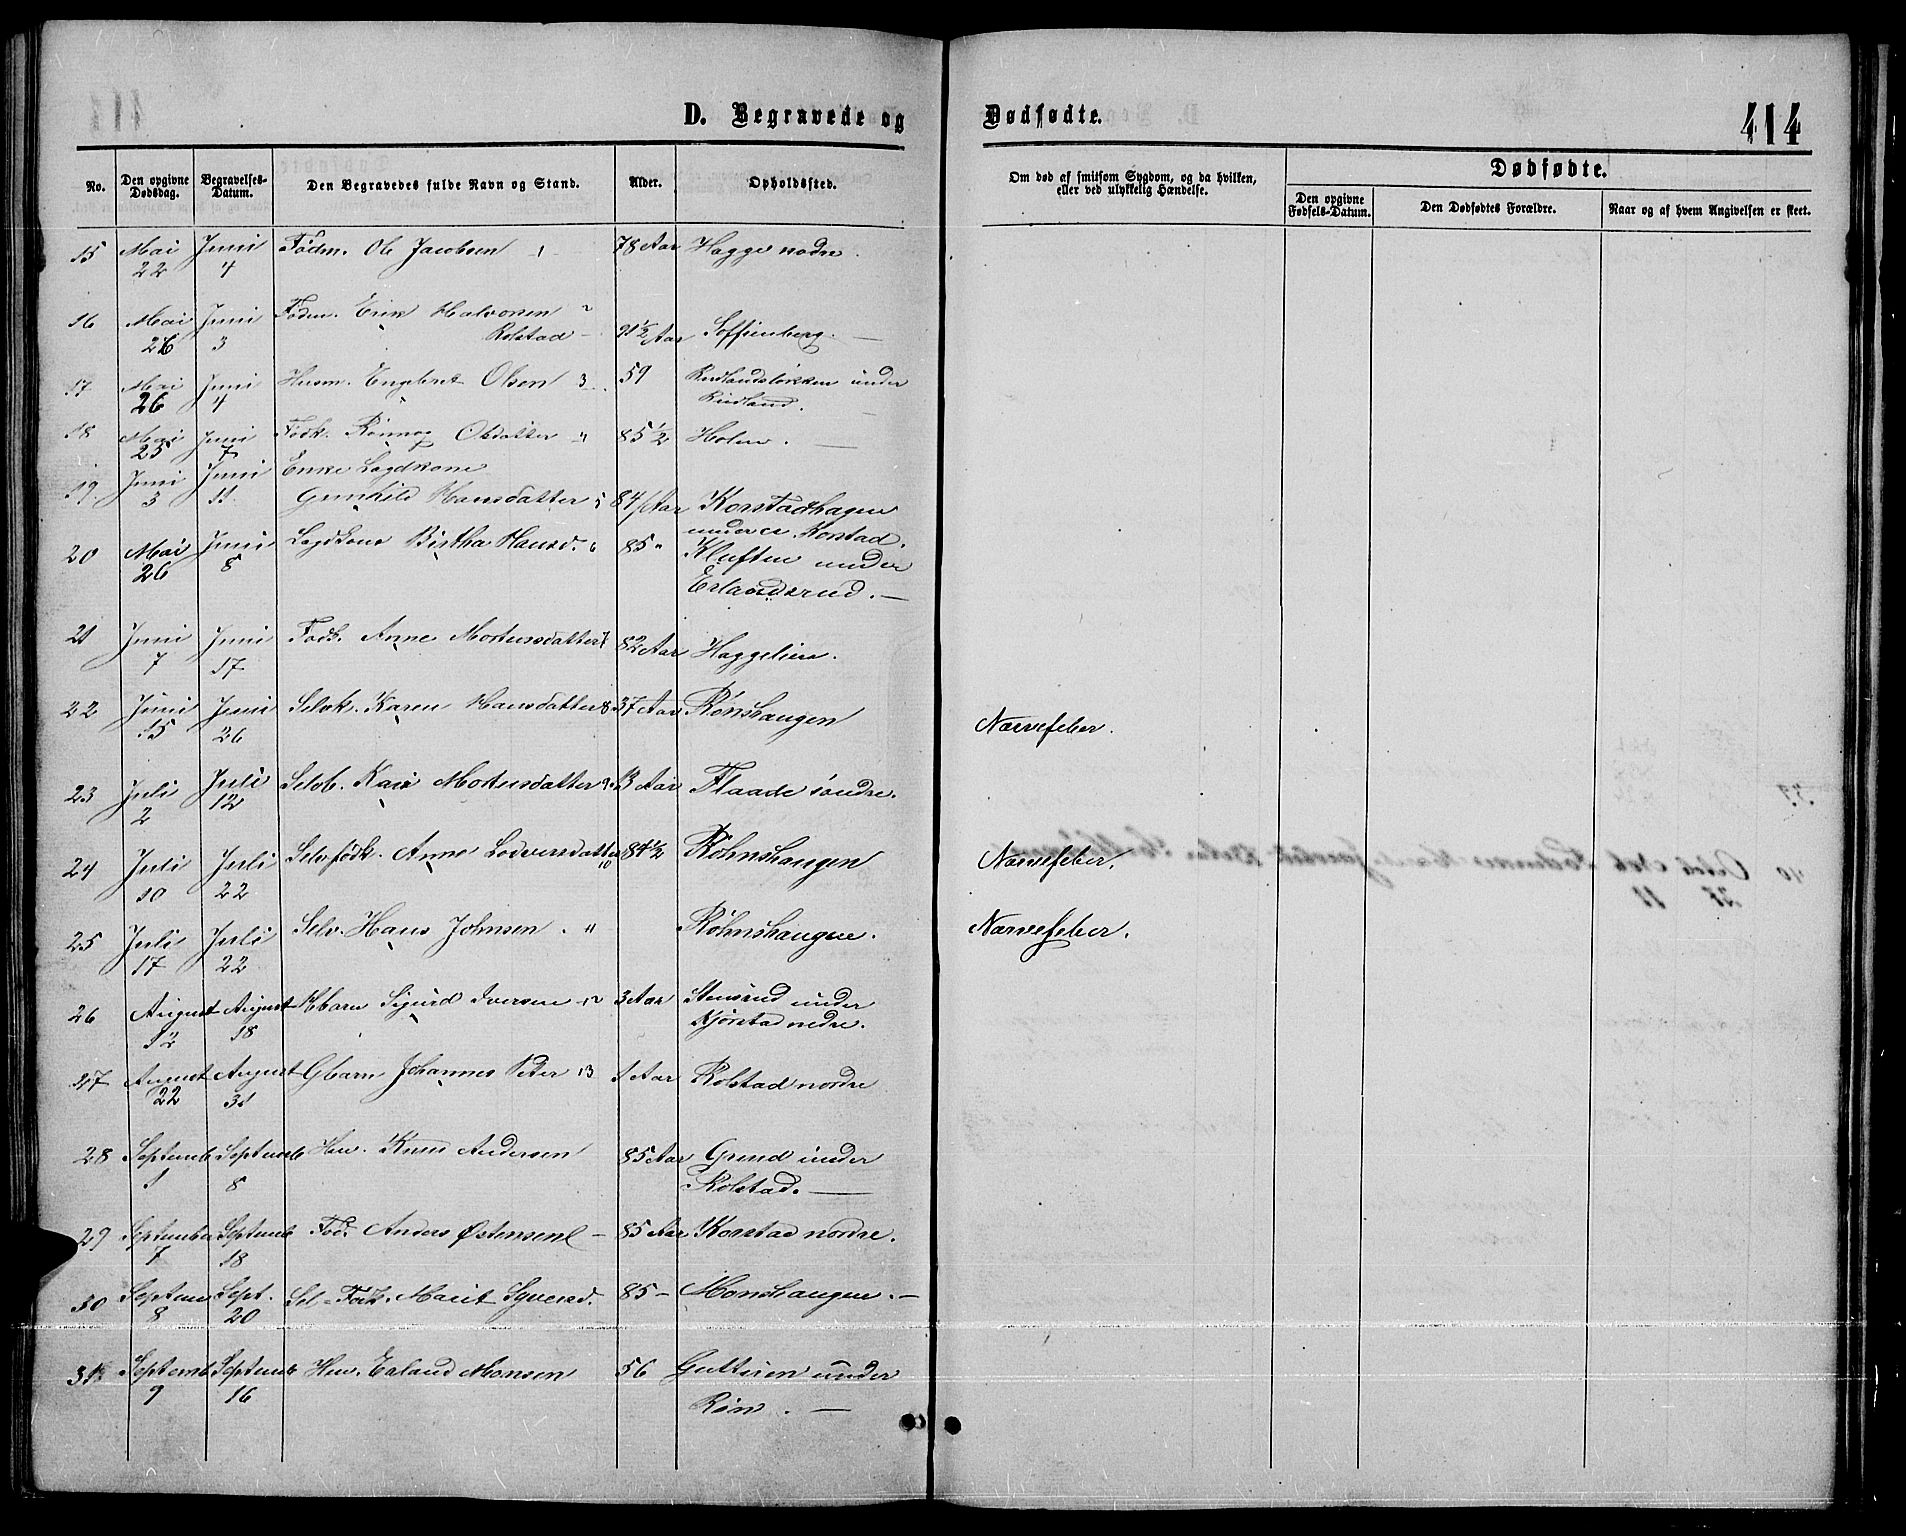 D. Begravede og Dødfødte. 414
No. Den opgivne Dødsdag. Begravelses-Datum. Den Begravedes fulde Navn og Stand. Alder. Opholdssted. Om død af smitsom Sygdom, og da hvilken, eller ved ulykkelig Hændelse. Dødfødte.
Den opgivne Fødsels-Datum. Den Dødfødtes Forældre. Naar og af hvem Angivelsen er skeet.
15 Mai 22 Juni 4 Fødm. Ole Jacobsen 1 78 Aar Hagge nodre.
16 Mai 26 Juni 3 Födm. Erik Halvorsen 2
Rolstad 91 1/2 Aar Soffienberg.
17 Mai 26 Juni 4 Husm. Engebret Olsen 3 59 under
Rudland.
18 Mai 25 Juni 7 Födk. Rønnog Olsdatter 4 85 1/2 Holen.
19 Juni 3 Juni 11 Enke Legdkone
Gunhild Hansdatter 5 84 Aar Korstadhagen
under Korstad.
20 Mai 26 Juni 8 Legdkone Birtha Hansd. 6 85 " Kluften under
Erlandsrud.
21 Juni 7 Juni 17 Födk. Anne Mortensdatter 7 82 Aar Haggelien.
22 Juni 15 Juni 26 Selvk. Karen Hansdatter 8 37 Aar Rønshaugen Nærvefeber.
23 Juli 2 Juli 12 Selvb. Kari Mortensdatter 9 13 Aar Flaade söndre.
24 Juli 10 Juli 22 Selvfödk. Anne Lodversdatter 10 84 1/2 Röhnshaugen Nærvefeber.
25 Juli 17 Juli 22 Selv. Hans Johnsen. 11 Röhnshaugen. Nærvefeber.
26 August 12 August 18 Hbarn Sigurd Iversen 12 3 Aar Stensrud under
Kjørstad nedre.
27 August 22 August 31 Gbarn Johannes Peter 13 1 Aar Rolstad nordre
28 Septemb 1 Septemb 8 Knud Andersen 85 Aar Grund under
Rolstad.
29 September 7 Septemb 18 Fød. Anders Østensen 85 Aar Korstad nordre.
30 Septem 8 Sept. 20 Sel-Födk. Marit Syversd. 85 - Monshaugen.
31 Septemb 9 Septemb 16 Erland Monsen 56 under
Röne.